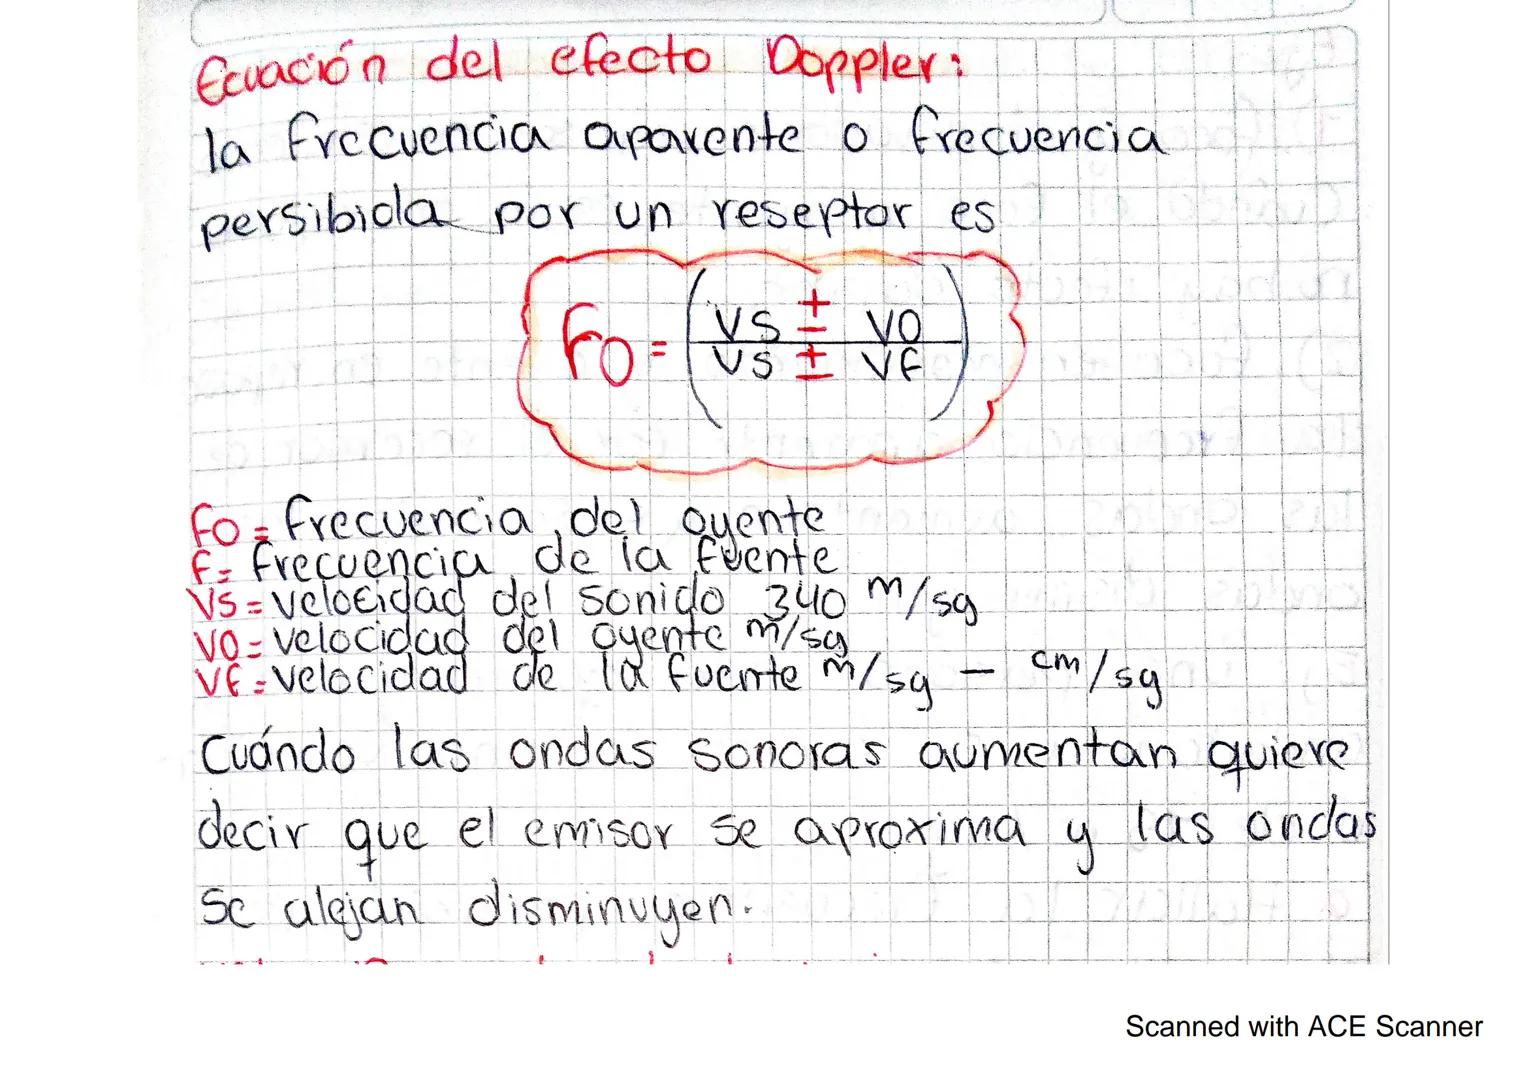 Ecuación del efecto Doppler:
la frecuencia aparente o frecuencia
persibida por un reseptor es
Fo = (VS ± VO
VS ± VF)
FO = frecuencia del oyente
F = frecuencia de la fuente
VS = velocidad del sonido 340 m/sg
VO = velocidad del oyente m/sg
VF = velocidad de la fuente m/sg - cm/sg
Cuándo las ondas sonoras aumentan quiere
decir que el emisor se aproxima y las ondas
se alejan disminuyen.
Scanned with ACE Scanner